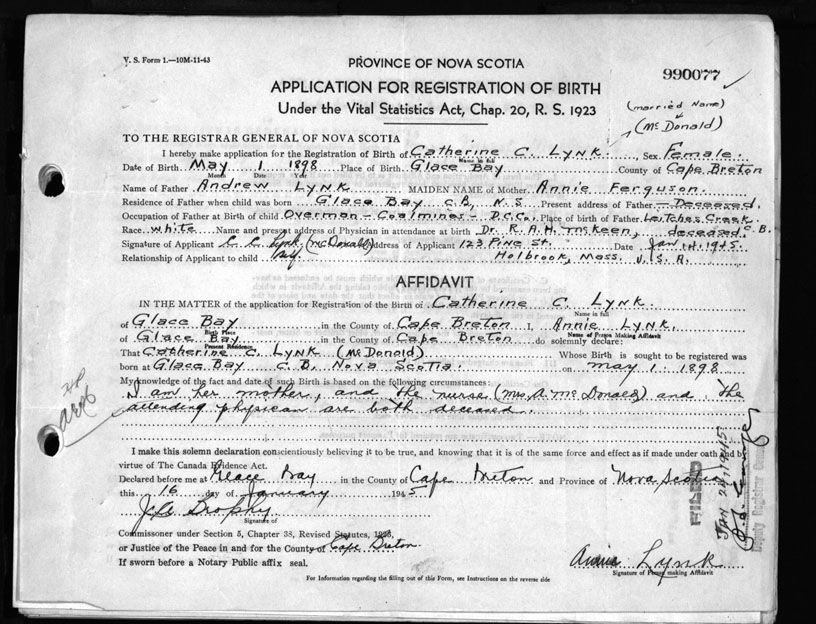 V. S. Form 1.—10M-11-43
PROVINCE OF NOVA SCOTIA
990077
APPLICATION FOR REGISTRATION OF BIRTH
(married Name)
Under the Vital Statistics Act, Chap. 20, R. S. 1923
(McDonald)
TO THE REGISTRAR GENERAL OF NOVA SCOTIA
I hereby make application for the Registration of Birth of Catherine C. Lynk. Sex Female.
Name in full
Date of Birth May 1 1898 Place of Birth Glace Bay County of Cape Breton
Month Date Year
Name of Father Andrew Lynk MAIDEN NAME of Mother Annie Ferguson.
Residence of Father when child was born Glace Bay C.B. N.S. Present address of Father — Deceased.
Occupation of Father at Birth of child Overman - Coalmines - D.C.Co. Place of birth of Father Leitches Creek. C.B.
Race white Name and present address of Physician in attendance at birth Dr. R.A.H. McKeen, deceased.
Signature of Applicant C. C. Lynk (McDonald) address of Applicant 123 Pine St. Date Jan 14, 1945.
Relationship of Applicant to child Holbrook, Mass. U.S.A.
AFFIDAVIT
IN THE MATTER of the application for Registration of the Birth of Catherine C. Lynk.
Name in full
of Glace Bay in the County of Cape Breton I, Annie Lynk.
Birth Place
Name of Person Making Affidavit
of Glace Bay in the County of Cape Breton do solemnly declare:
Present Residence
That Catherine C. Lynk (McDonald) Whose Birth is sought to be registered was
born at Glace Bay C.B. Nova Scotia. on May 1 1898
My knowledge of the fact and date of such Birth is based on the following circumstances:
I am her mother, and the nurse (Mrs. A. McDonald) and the
attending physican are both deceased.
I make this solemn declaration conscientiously believing it to be true, and knowing that it is of the same force and effect as if made under oath and by
virtue of The Canada Evidence Act.
Declared before me at Glace Bay in the County of Cape Breton and Province of Nova Scotia
this 16 day of January 1945
Signature of
Commissioner under Section 5, Chapter 38, Revised Statutes, 1923
or Justice of the Peace in and for the County of Cape Breton
If sworn before a Notary Public affix seal.
Annie Lynk
Signature of Person making Affidavit
For Information regarding the filling out of this Form, see Instructions on the reverse side
FILED
Deputy Registrar General